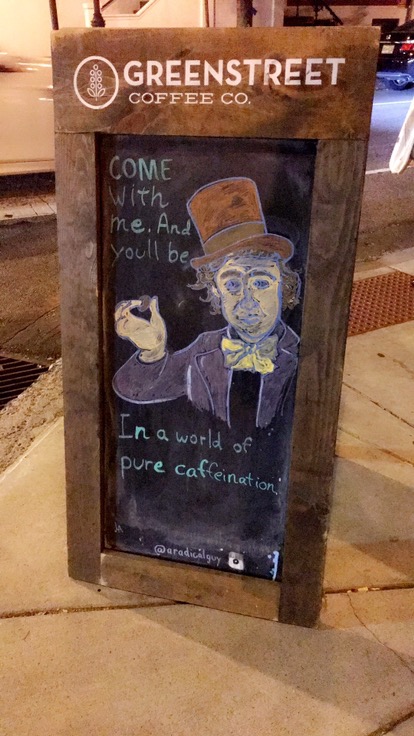 GREENSTREET
COFFEE CO.
COME
With
me. And
youll be
In a world of
pure caffeination.
JA
@aradicalguy